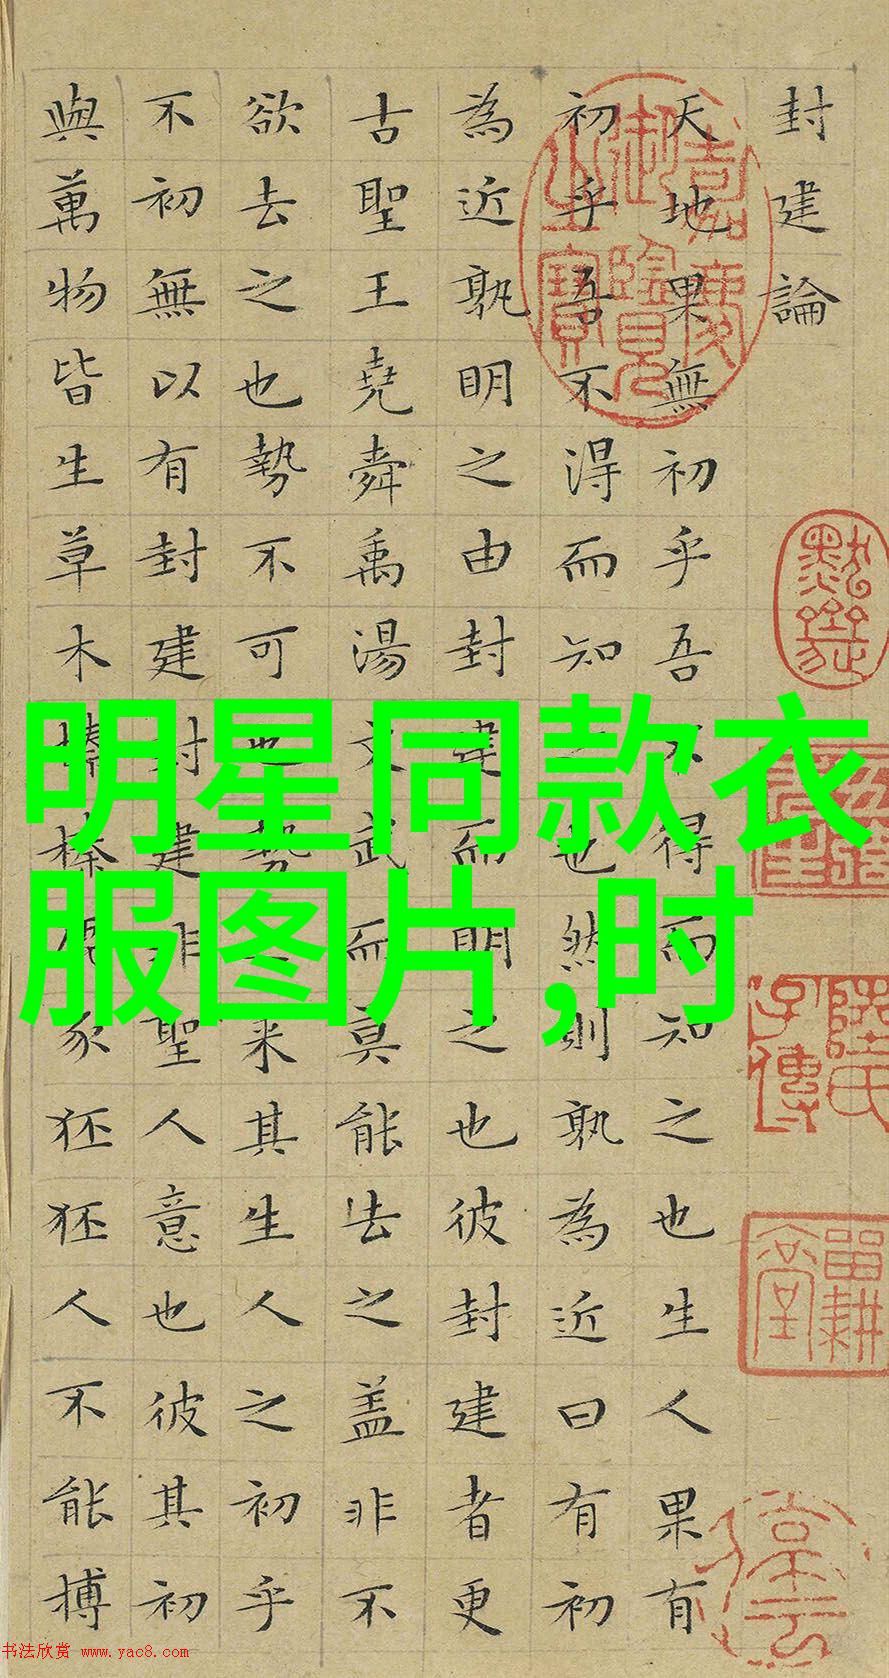 封建論
天地果無初乎吾不得而知之也生人果有
初乎吾不得而知之也然則孰為近曰有初
為近孰明之由封建而明之也彼封建者更
古聖王堯舜禹湯文武而莫能去之盖非不
欲去之也勢不可也勢之来其生人之初乎
不初無以有封建封建非聖人意也彼其初
與萬物皆生草木榛榛鹿豕狉狉人不能搏
嘉慶御覽之寶
陸氏子傳
畱耕堂
明星同款衣
服图片,时
书法欣赏 www.yac8.com